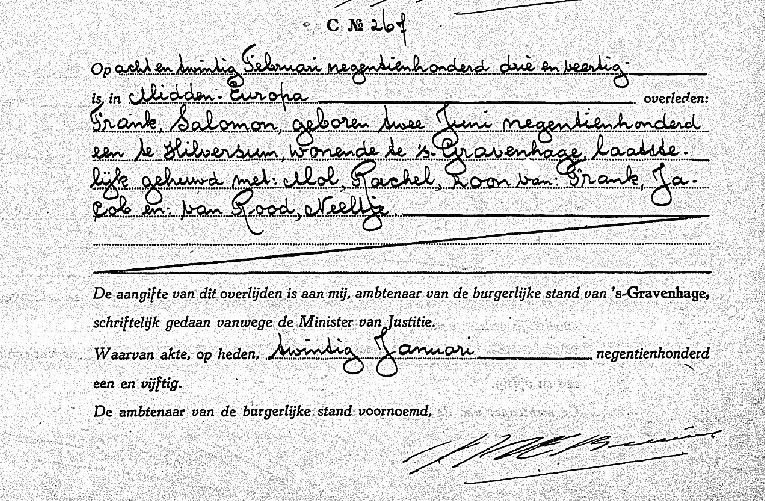 C № 267
Op acht en twintig Februari negentienhonderd drie en veertig
is, in Midden-Europa overleden:
Frank, Salomon, geboren twee Juni negentienhonderd
een te Hilversum, wonende te 's-Gravenhage, laatste-
lijk gehuwd met: Mol, Rachel, Zoon van: Frank, Ja-
cob en: van Rood, Neeltje
De aangifte van dit overlijden is aan mij, ambtenaar van de burgerlijke stand van 's-Gravenhage,
schriftelijk gedaan vanwege de Minister van Justitie.
Waarvan akte, op heden, twintig Januari negentienhonderd
een en vijftig.
De ambtenaar van de burgerlijke stand voornoemd,